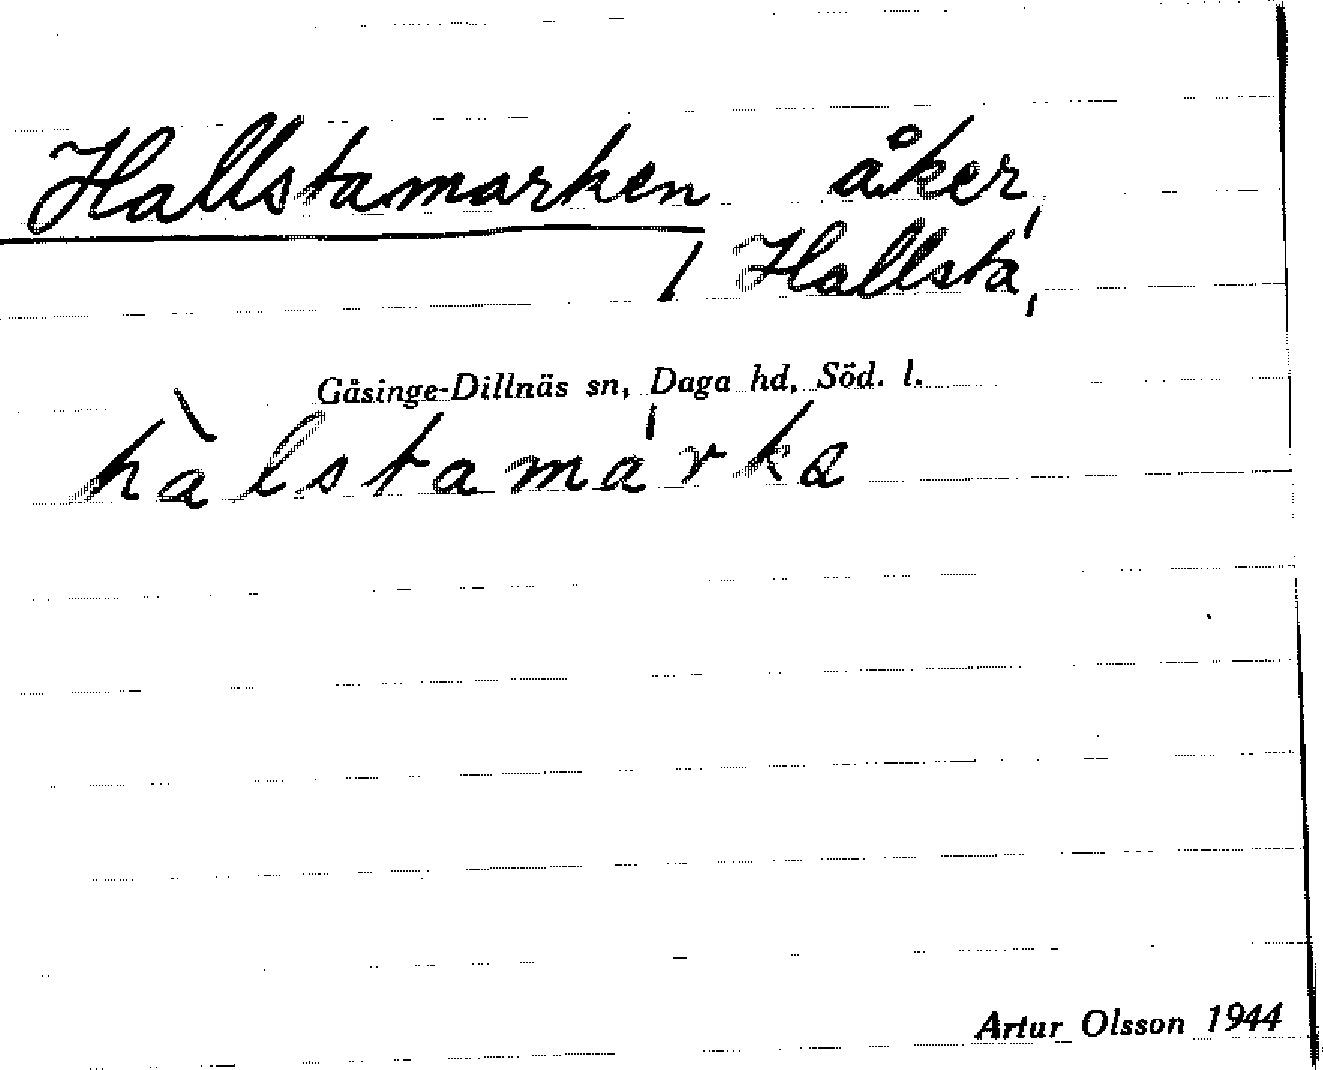 Hallstamarken åker,
/ Hallsta,
Gåsinge-Dillnäs sn, Daga hd, Söd. l.
hàlstamárka
Artur Olsson 1944